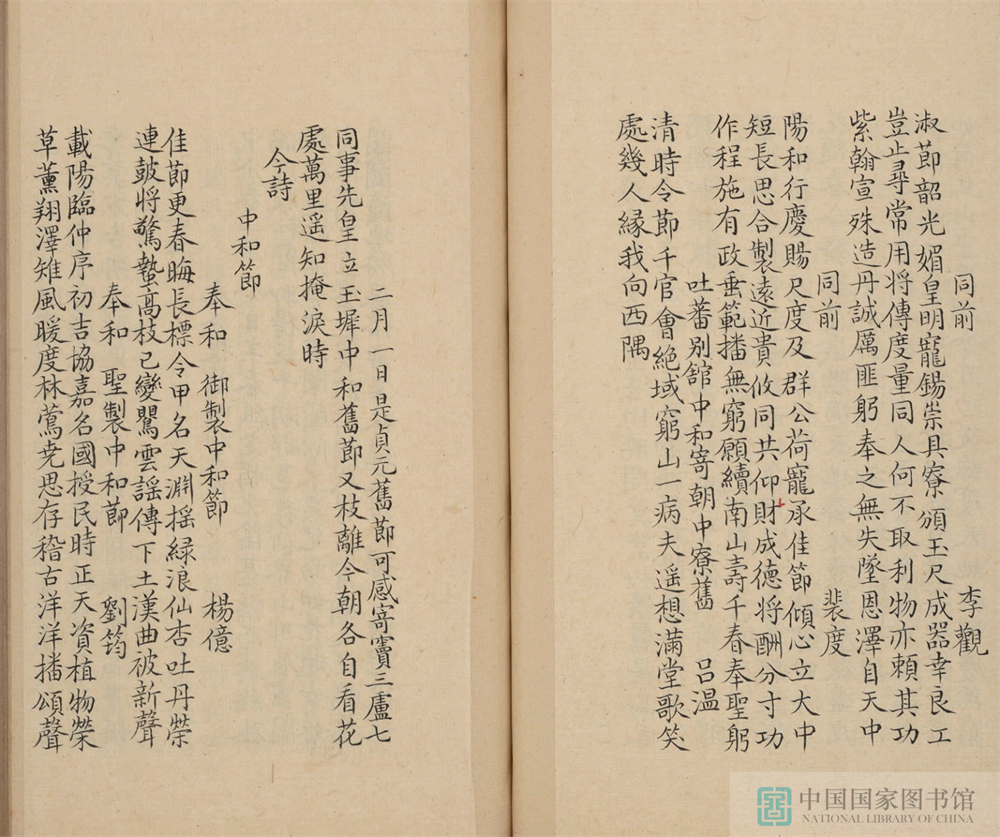 同前　李觀
淑節韶光媚皇明寵錫崇具寮頒玉尺成器幸良工
豈止尋常用將傳度量同人何不取利物亦賴其功
紫翰宣殊造丹誠厲匪躬奉之無失墜恩澤自天中
同前　裴度
陽和行慶賜尺度及群公荷寵承佳節傾心立大中
短長思合製遠近貴攸同共仰財成德将酬分寸功
作程施有政垂範播無窮願續南山壽千春奉聖躬
吐蕃別舘中和寄朝中寮舊　呂溫
清時令節千官會絶域窮山一病夫遥想滿堂歌笑
處幾人縁我向西隅
二月一日是貞元舊節可感寄竇三盧七
同事先皇立玉墀中和舊節又枝離今朝各自看花
處萬里遥知掩淚時
今詩
中和節
奉和　御製中和節　楊億
佳節更春晦長標令甲名天淵揺緑浪仙杏吐丹榮
連皷将驚蟄髙枝已變鸎雲謡傳下土漢曲被新聲
奉和　聖製中和莭　劉筠
載陽臨仲序初吉協嘉名國授民時正天資植物榮
草薰翔澤雉風暖度林鶯尭思存稽古洋洋播頌聲
中国国家图书馆
NATIONAL LIBRARY OF CHINA